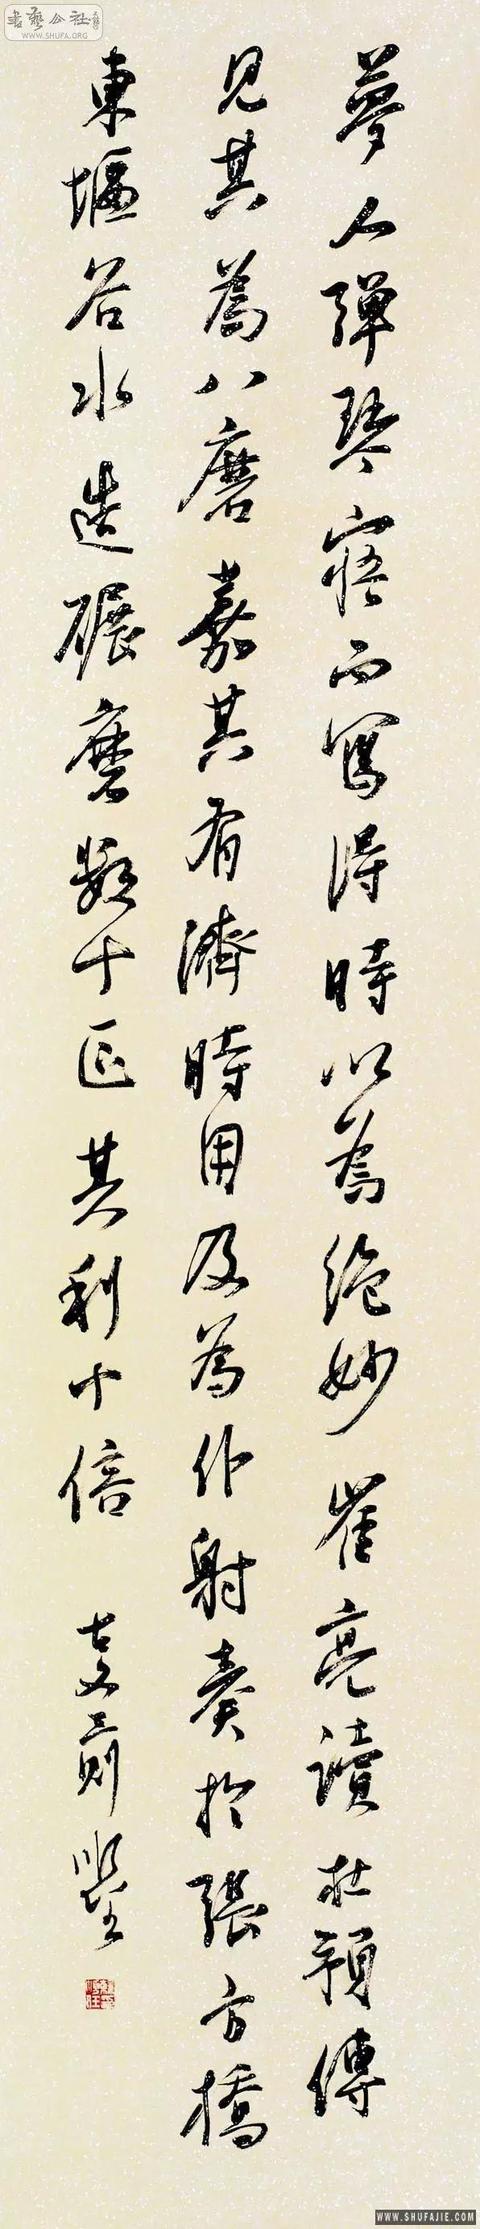 夢人彈琴寤而寫得時以為絶妙崔亮讀杜預傳
見其為八磨嘉其有濟時用及為仆射奏於張方橋
東堰谷水造碾磨數十區其利十倍
古文二則
書藝公社
WWW.SHUFA.ORG
WWW.SHUFAJIE.COM